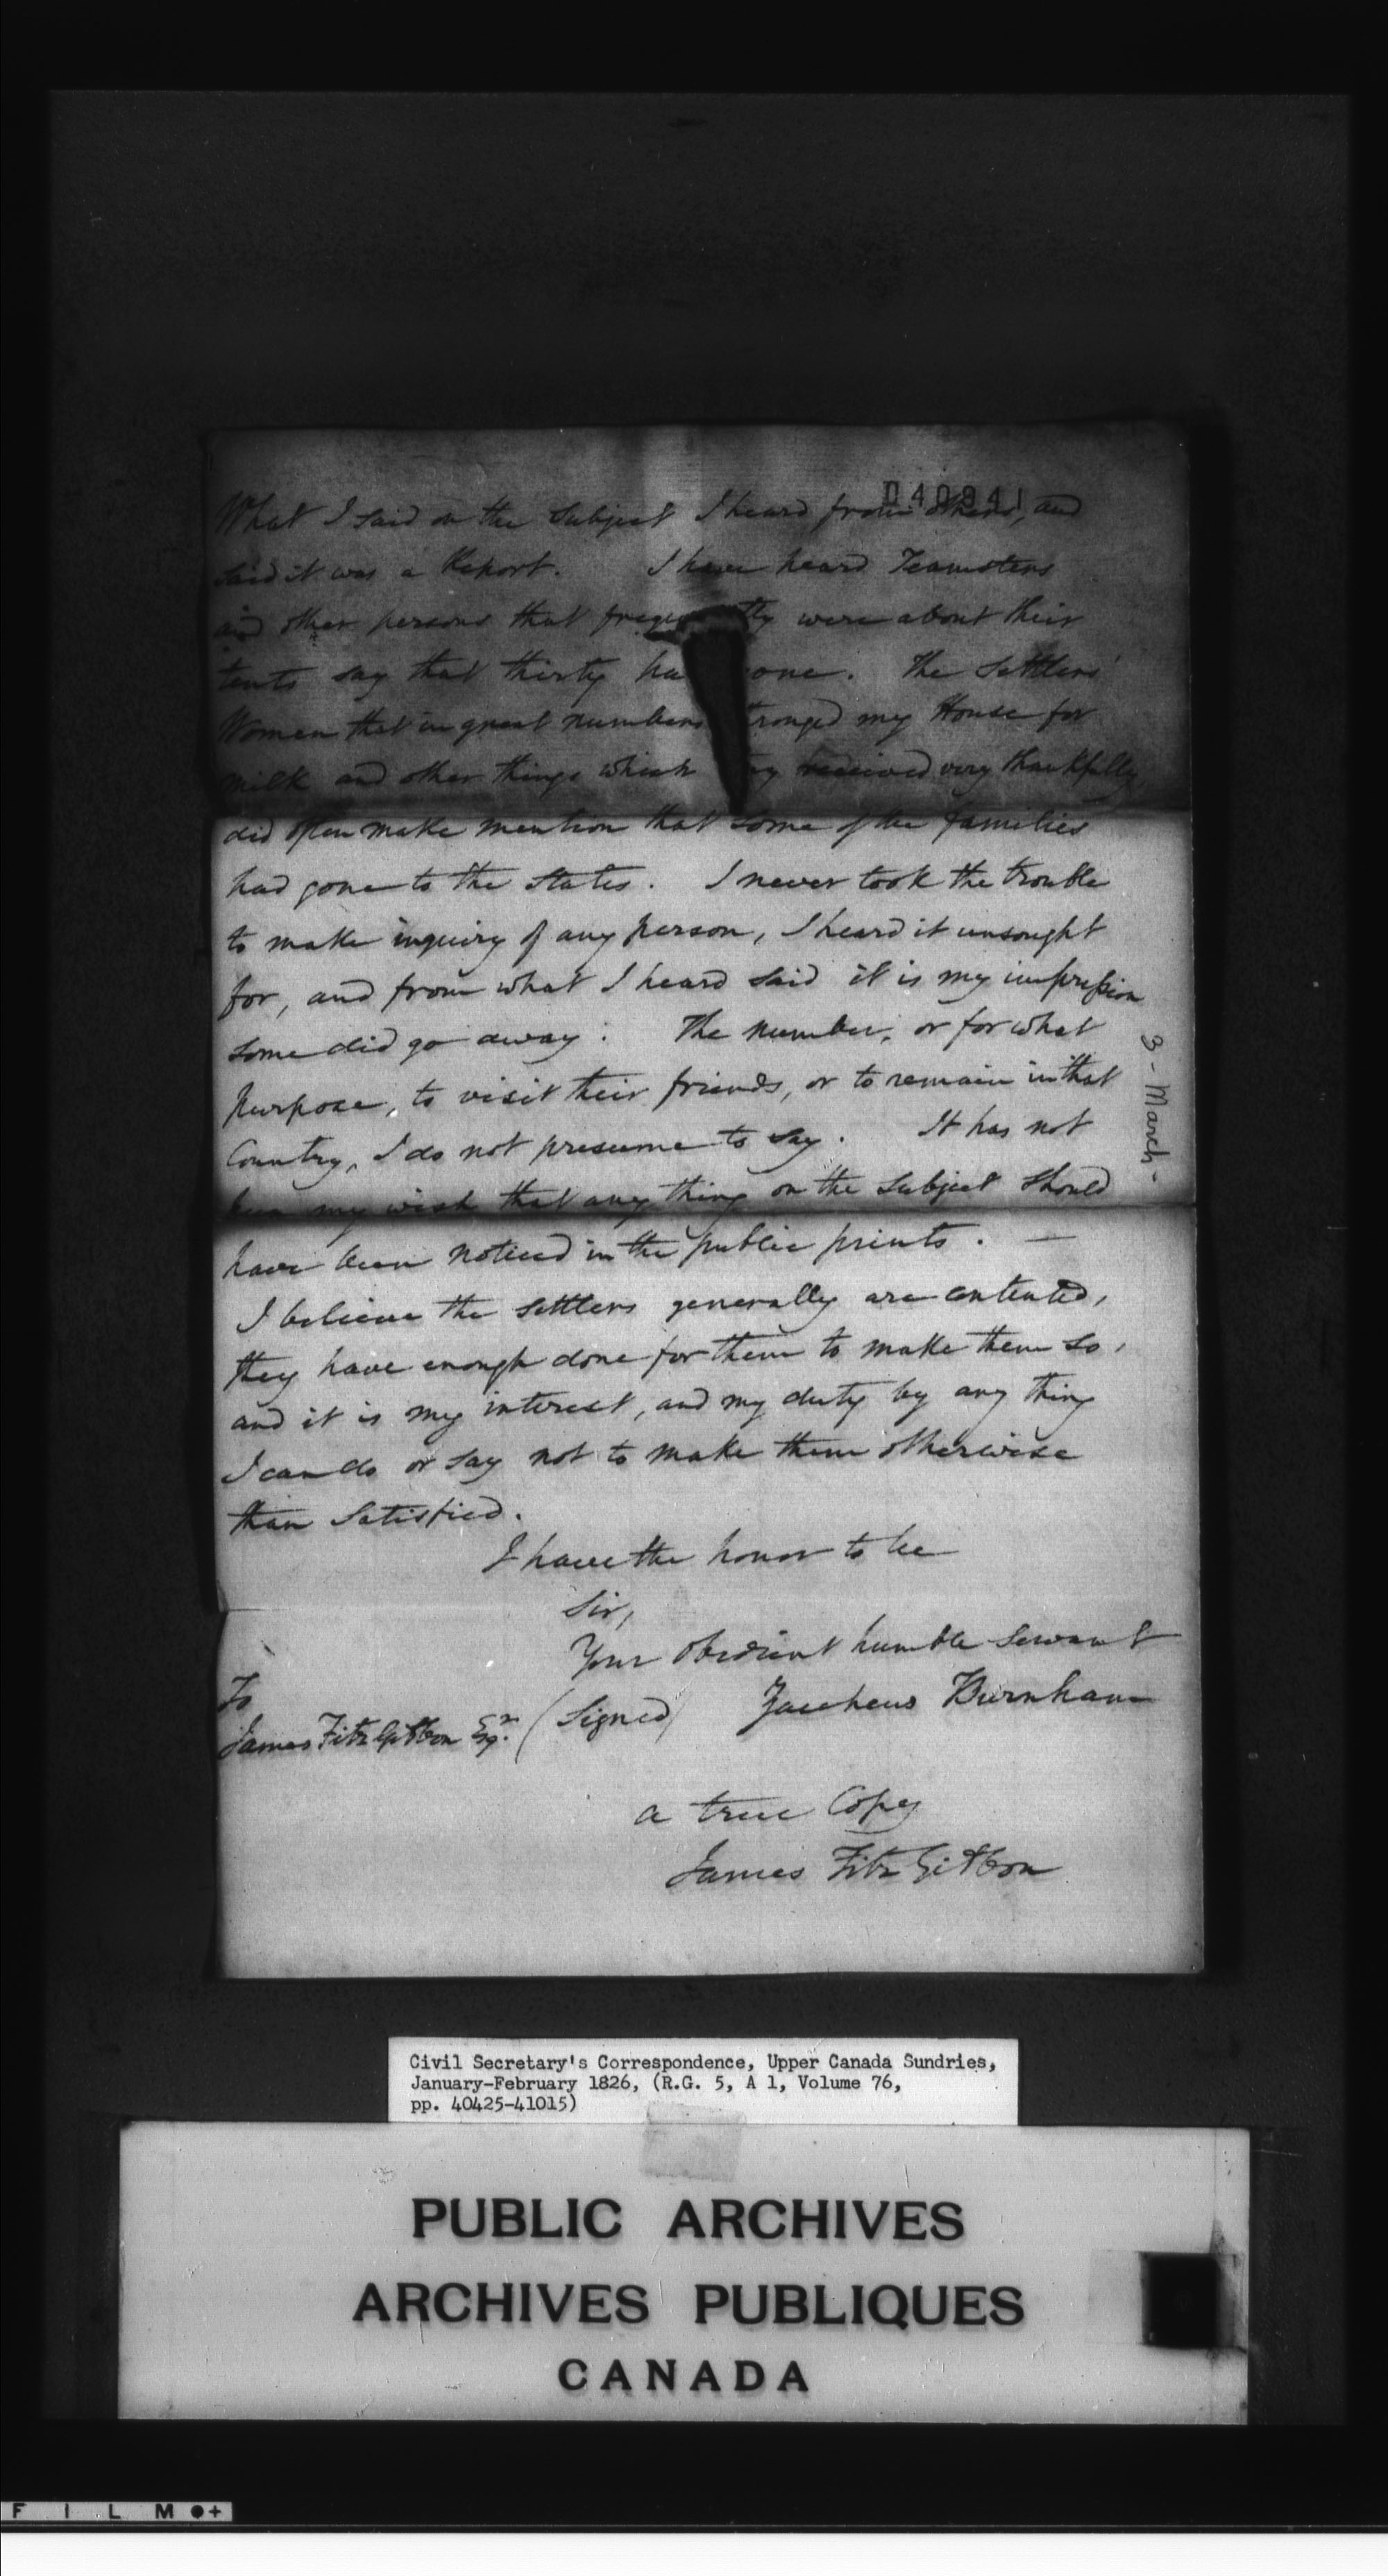 040941
What I said on the subject I heard from others, and
said it was a Report. I have heard Teamsters
and other persons that freque tly were about their
tents say that thirty ha one. The Settlers'
Women that in great numbers ronged my House for
milk and other things which y received very thankfully,
did often make mention that some of the families
had gone to the States. I never took the trouble
to make inquiry of any person, I heard it unsought
for, and from what I heard said it is my impression
some did go away: The number, or for what
purpose, to visit their friends, or to remain in that
Country, I do not presume to say. It has not
been my wish that any thing on the subject should
have been noticed in the public prints. —
I believe the settlers generally are contented,
they have enough done for them to make them so,
and it is my interest, and my duty by any thing
I can do or say not to make them otherwise
than satisfied.
I have the honor to be
Sir,
Your obedient humble servant
(Signed) Zaccheus Burnham
To
James FitzGibbon Esqr.
a true Copy
James FitzGibbon
3 - March -
Civil Secretary's Correspondence, Upper Canada Sundries,
January-February 1826, (R.G. 5, A 1, Volume 76,
pp. 40425-41015)
PUBLIC ARCHIVES
ARCHIVES PUBLIQUES
CANADA
FILM +